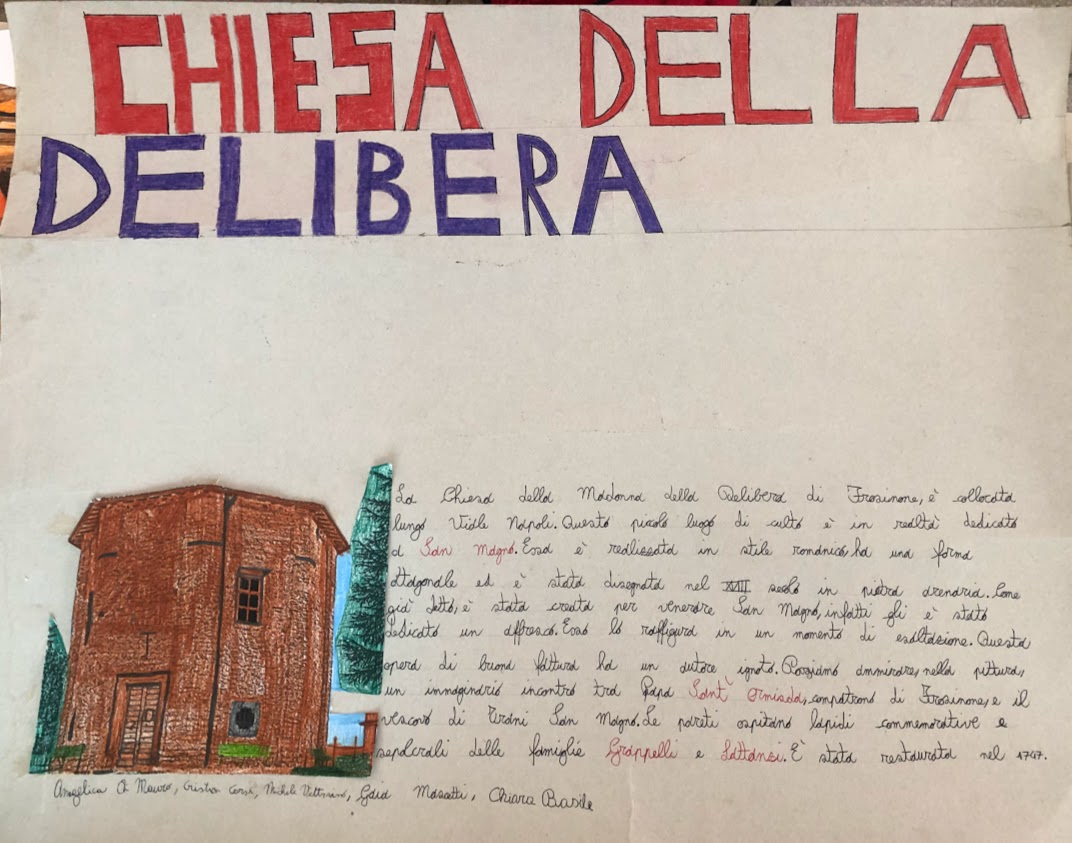 CHIESA DELLA
DELIBERA
La Chiesa della Madonna della Delibera di Frosinone, è collocata
lungo Viale Napoli. Questo piccolo luogo di culto è in realtà dedicato
a San Magno. Essa è realizzata in stile romanico, ha una forma
ottagonale ed è stata disegnata nel XVIII secolo in pietra arenaria. Come
già detto, è stata creata per venerare San Magno, infatti gli è stato
dedicato un affresco. Esso lo raffigura in un momento di esaltazione. Questa
opera di buona fattura ha un autore ignoto. Possiamo ammirare, nella pittura,
un immaginario incontro tra Papa Sant' Ormisda, compatrono di Frosinone, e il
vescovo di Trani San Magno. Le pareti ospitano lapidi commemorative e
sepolcrali delle famiglie Grappelli e Lattanzi. È stata restaurata nel 1747.
Angelica Di Mauro, Cristian Corsi, Michele Vittorino, Gaia Masatti, Chiara Basile